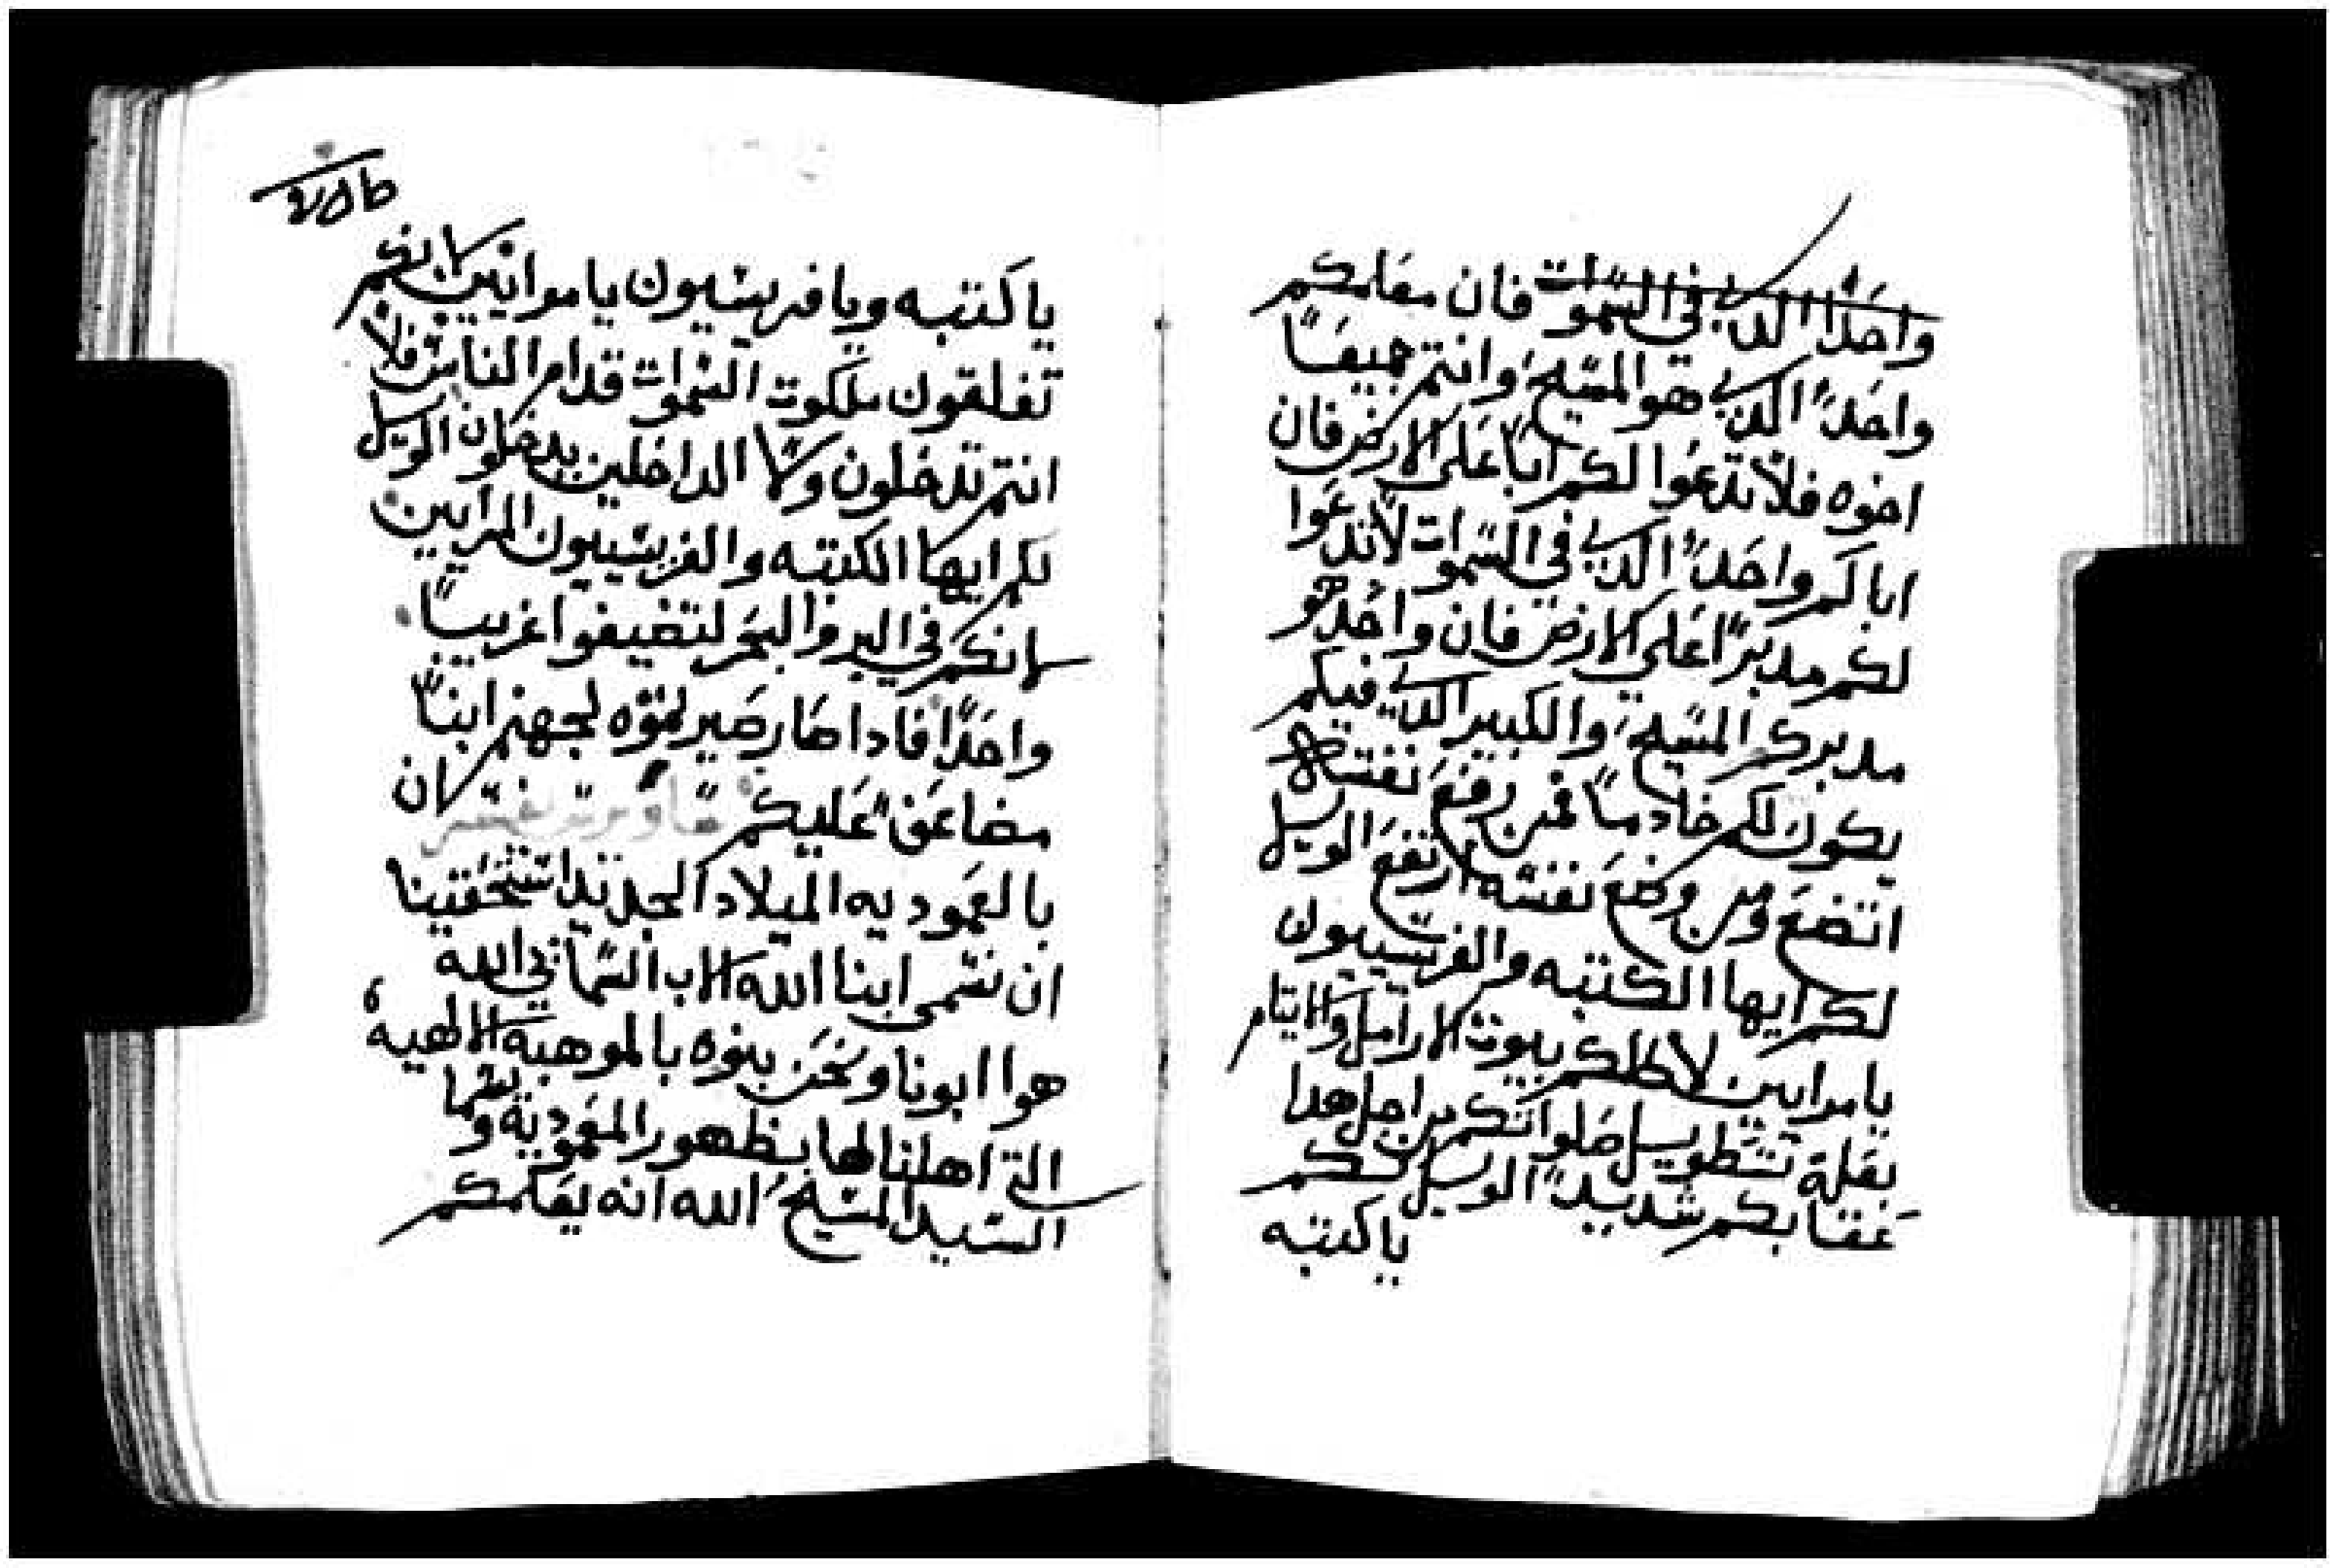 واحدًا الدي في السموات فان معلمكم
واحدً الدي هو المسيح وانتم جميعًا
اخوه فلا تدعوا لكم ابًا على الارض فان
اباكم واحدً الدي في السموات لا تدعوا
لكم مدبرًا على الارض فان واحد هو
مدبركم المسيح والكبير الدي فيكم
يكون لكم خادمًا فمن رفع نفسه
اتضع ومن وضع نفسه ارتفع الويل
لكم ايها الكتبه والفريسيون
يا مرايين لاكلكم بيوت الارامل والايتام
بعلة تطويل صلواتكم من اجل هدا
عقابكم شديدً الويل لكم
يا كتبه
يا كتبه ويا فريسيون يا مرايين لانكم
تغلقون ملكوت السموات قدام الناس فلا
انتم تدخلون ولا الداخلين يدخلون الويل
لكم ايها الكتبه والفريسيون المرايين
لانكم في البر والبحر لتضيفوا غريبًا
واحدًا فادا صار صيرتموه لجهنم ابنًا
مضاعف عليكم لان
بالعموديه الميلاد الجديد استحقينا
ان نسمى ابنا الله الاب السماني الله
هوا ابونا ونحن بنوه بالموهبة الالهية
التي اهلنا لها بظهور المعمودية
السيد المسيح الله انه يعلمكم